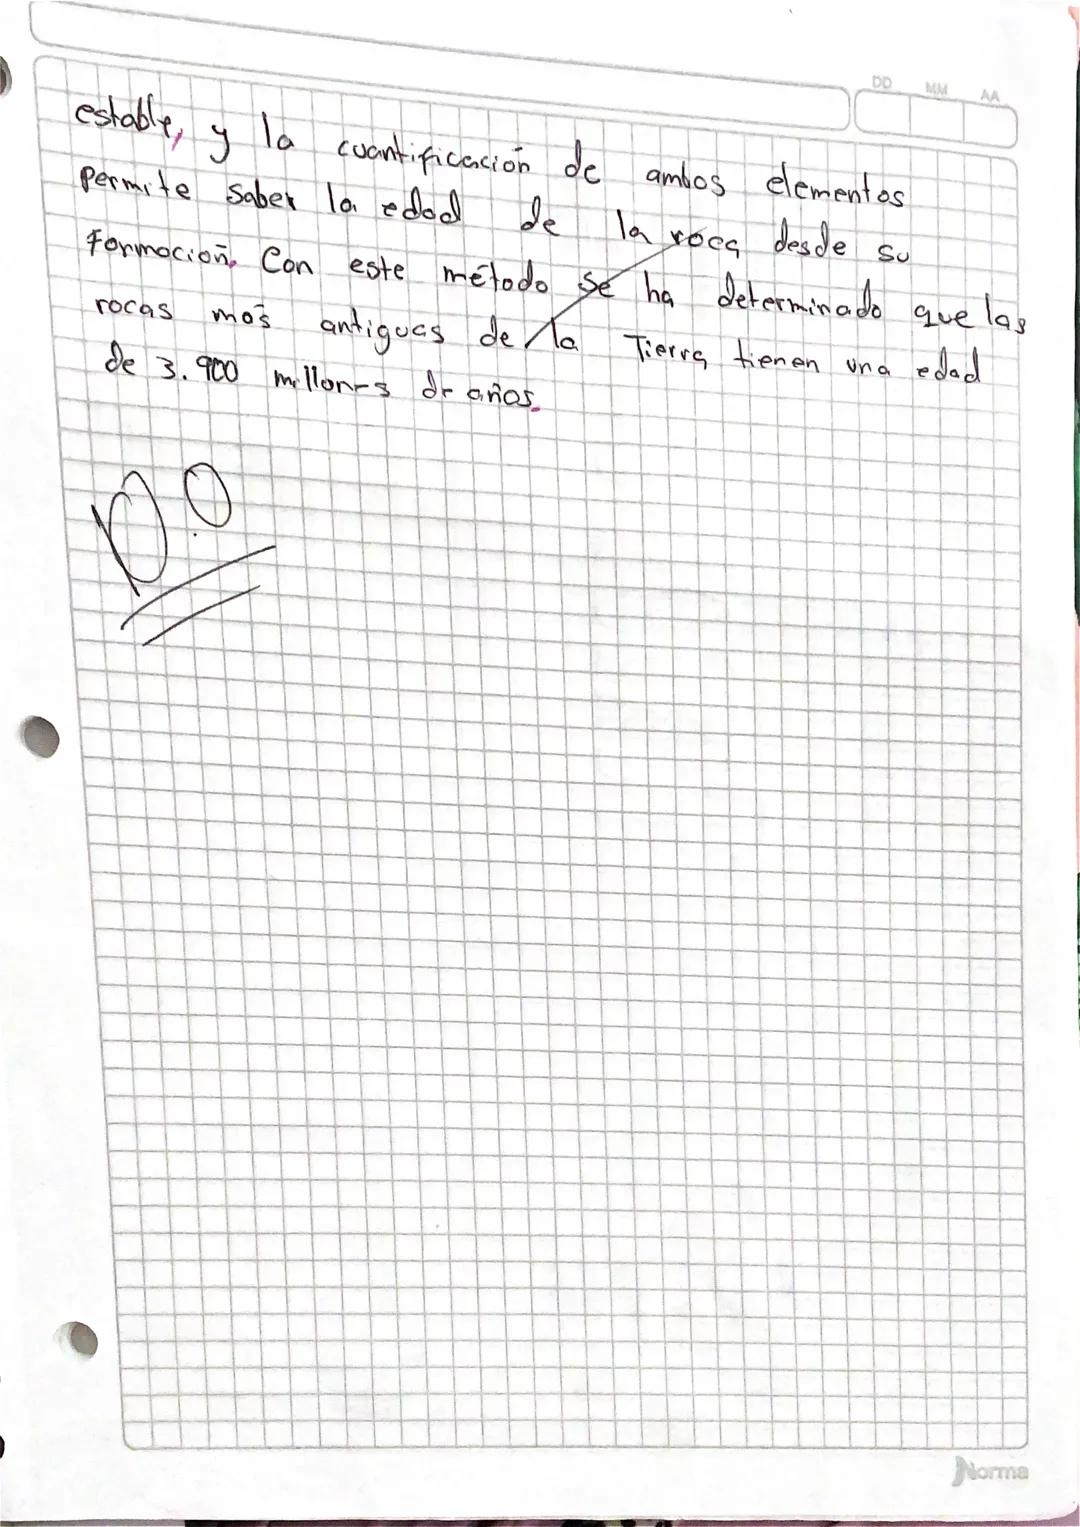 DD MM AA
estable, y la cuantificación de ambos elementos
permite saber la edad de la roca desde su
Formación. Con este método se ha determinado que las
rocas más antiguas de la Tierra tienen una edad
de 3.900 millones de años.
0.0
Norma